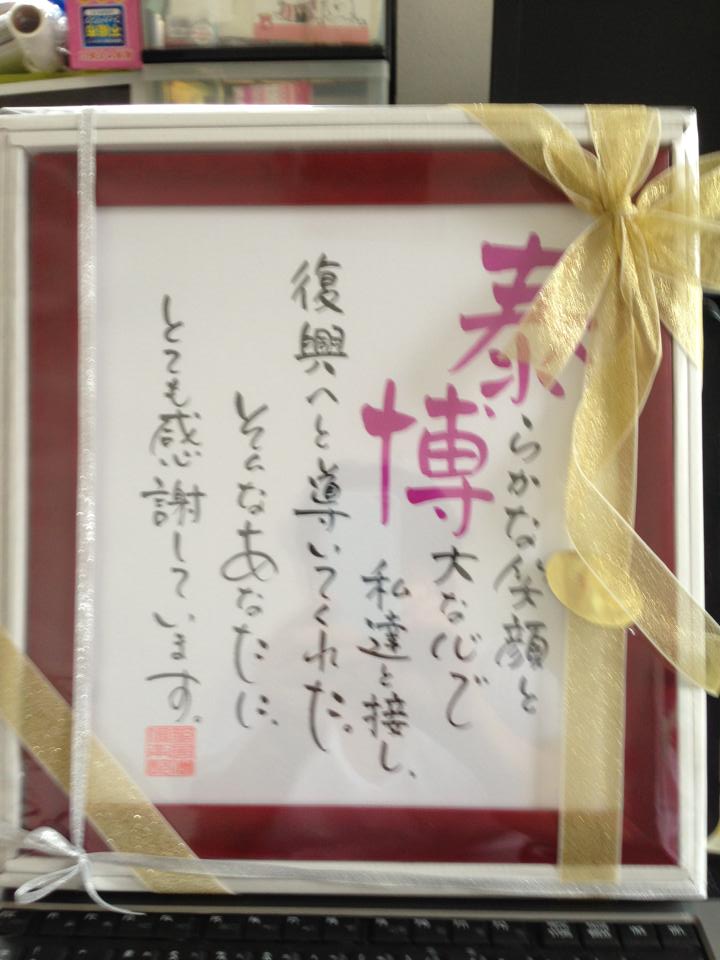 泰らかな笑顔と
博大な心で
私達と接し、
復興へと導いてくれた。
そんなあなたに、
とても感謝しています。